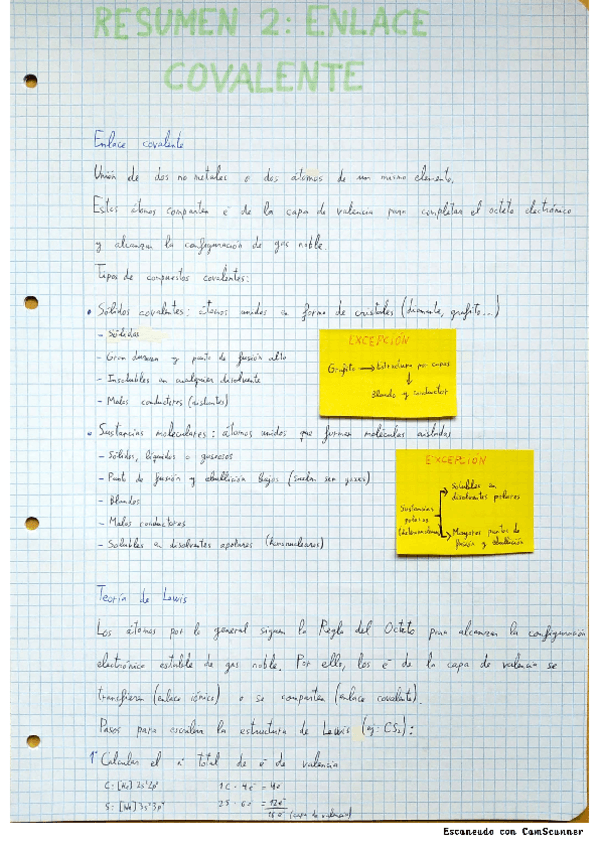 RESUMEN 2: ENLACE
COVALENTE
Enlace covalente
Unión de dos no metales o dos átomos de un mismo elemento.
Estos átomos comparten e⁻ de la capa de valencia para completar el octeto electrónico
y alcanzar la configuración de gas noble.
Tipos de compuestos covalentes:
• Sólidos covalentes: átomos unidos en forma de cristales (diamante, grafito...)
- Sólidos
- Gran dureza y punto de fusión alto
- Insolubles en cualquier disolvente
- Malos conductores (aislantes)
EXCEPCIÓN
Grafito → Estructura por capas
↓
Blando y conductor
• Sustancias moleculares: átomos unidos que forman moléculas aisladas
- Sólidos, líquidos o gaseosos
- Punto de fusión y ebullición bajos (suelen ser gases)
- Blandos
- Malos conductores
- Solubles en disolventes apolares (homonucleares)
EXCEPCIÓN
Sustancias polares (heteronucleares)
→ Solubles en disolventes polares
→ Mayores puntos de fusión y ebullición
Teoría de Lewis
Los átomos por lo general siguen la Regla del Octeto para alcanzar la configuración
electrónica estable de gas noble. Por ello, los e⁻ de la capa de valencia se
transfieren (enlace iónico) o se comparten (enlace covalente).
Pasos para escribir la estructura de Lewis (ej: CS₂):
1º Calcular el nº total de e⁻ de valencia
C: [He] 2s² 2p² 1C · 4e⁻ = 4e⁻
S: [Ne] 3s² 3p⁴ 2S · 6e⁻ = 12e⁻
16e⁻ (capa de valencia)
Escaneado con CamScanner